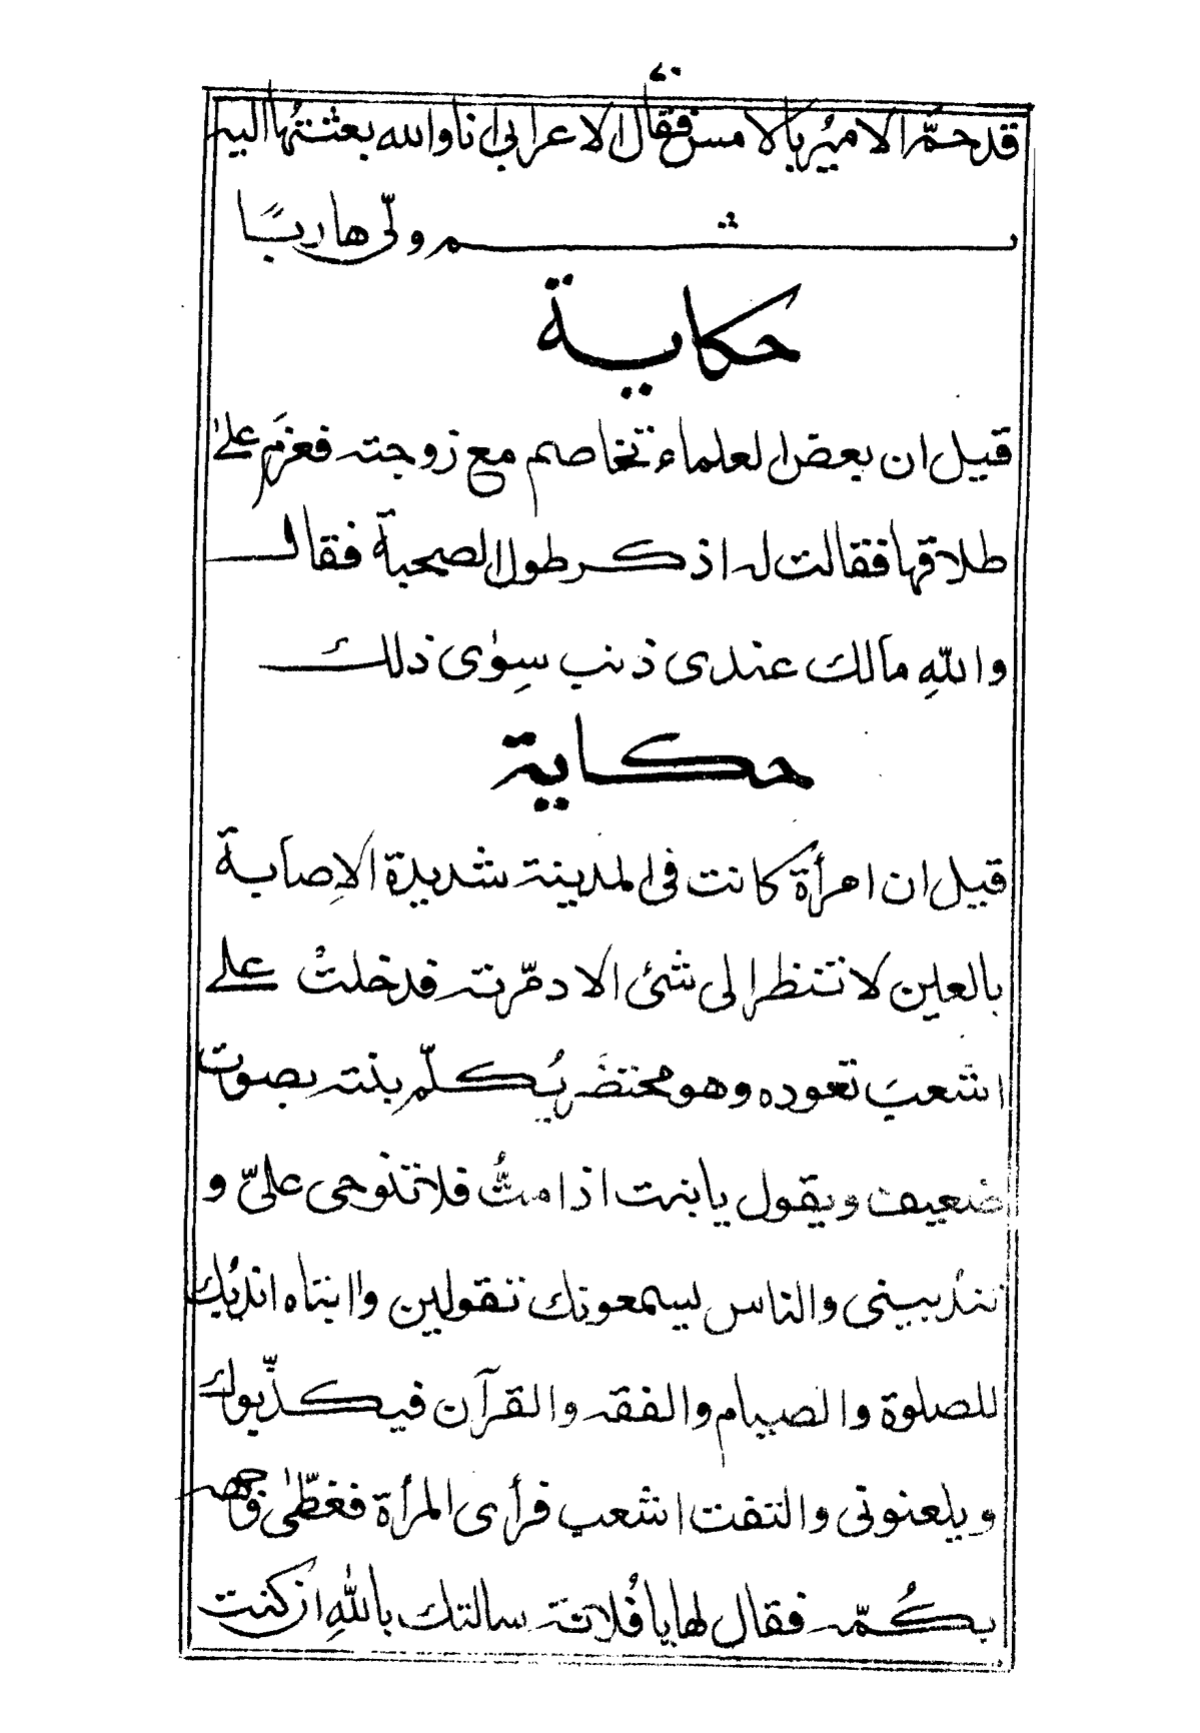 ٧٠
قد حمّ الامیرُ بالامس فقال الاعرابی انا والله بعثتُها الیہ
ثم ولّی هاربًا
حکایة
قیل ان بعض العلماء تخاصم مع زوجتہ فعزمَ علیٰ
طلاقها فقالت لہ اذکر طول الصحبة فقال
واللّٰهِ مالك عندی ذنب سِوٰی ذلك
حکایة
قیل ان امرأة کانت فی المدینة شدیدة الاِصابة
بالعین لا تنظر الی شئ الا دمّرتہ فدخلتْ علی
اشعبَ تعوده وهو محتضَر یُکلّم بنتہ بصوت
ضعیف ویقول یا بنت اذا متُّ فلا تنوحی علیّ و
تندُبینی والناس یسمعونك تقولین وا ابتاه اندبُك
للصلوة والصیام والفقہ والقرآن فیکذّبوك
ویلعنونی والتفت اشعب فرأی المرأة فغطّیٰ وجهہ
بکُمّہ فقال لها یا فُلانة سالتك باللّٰهِ ان کنت